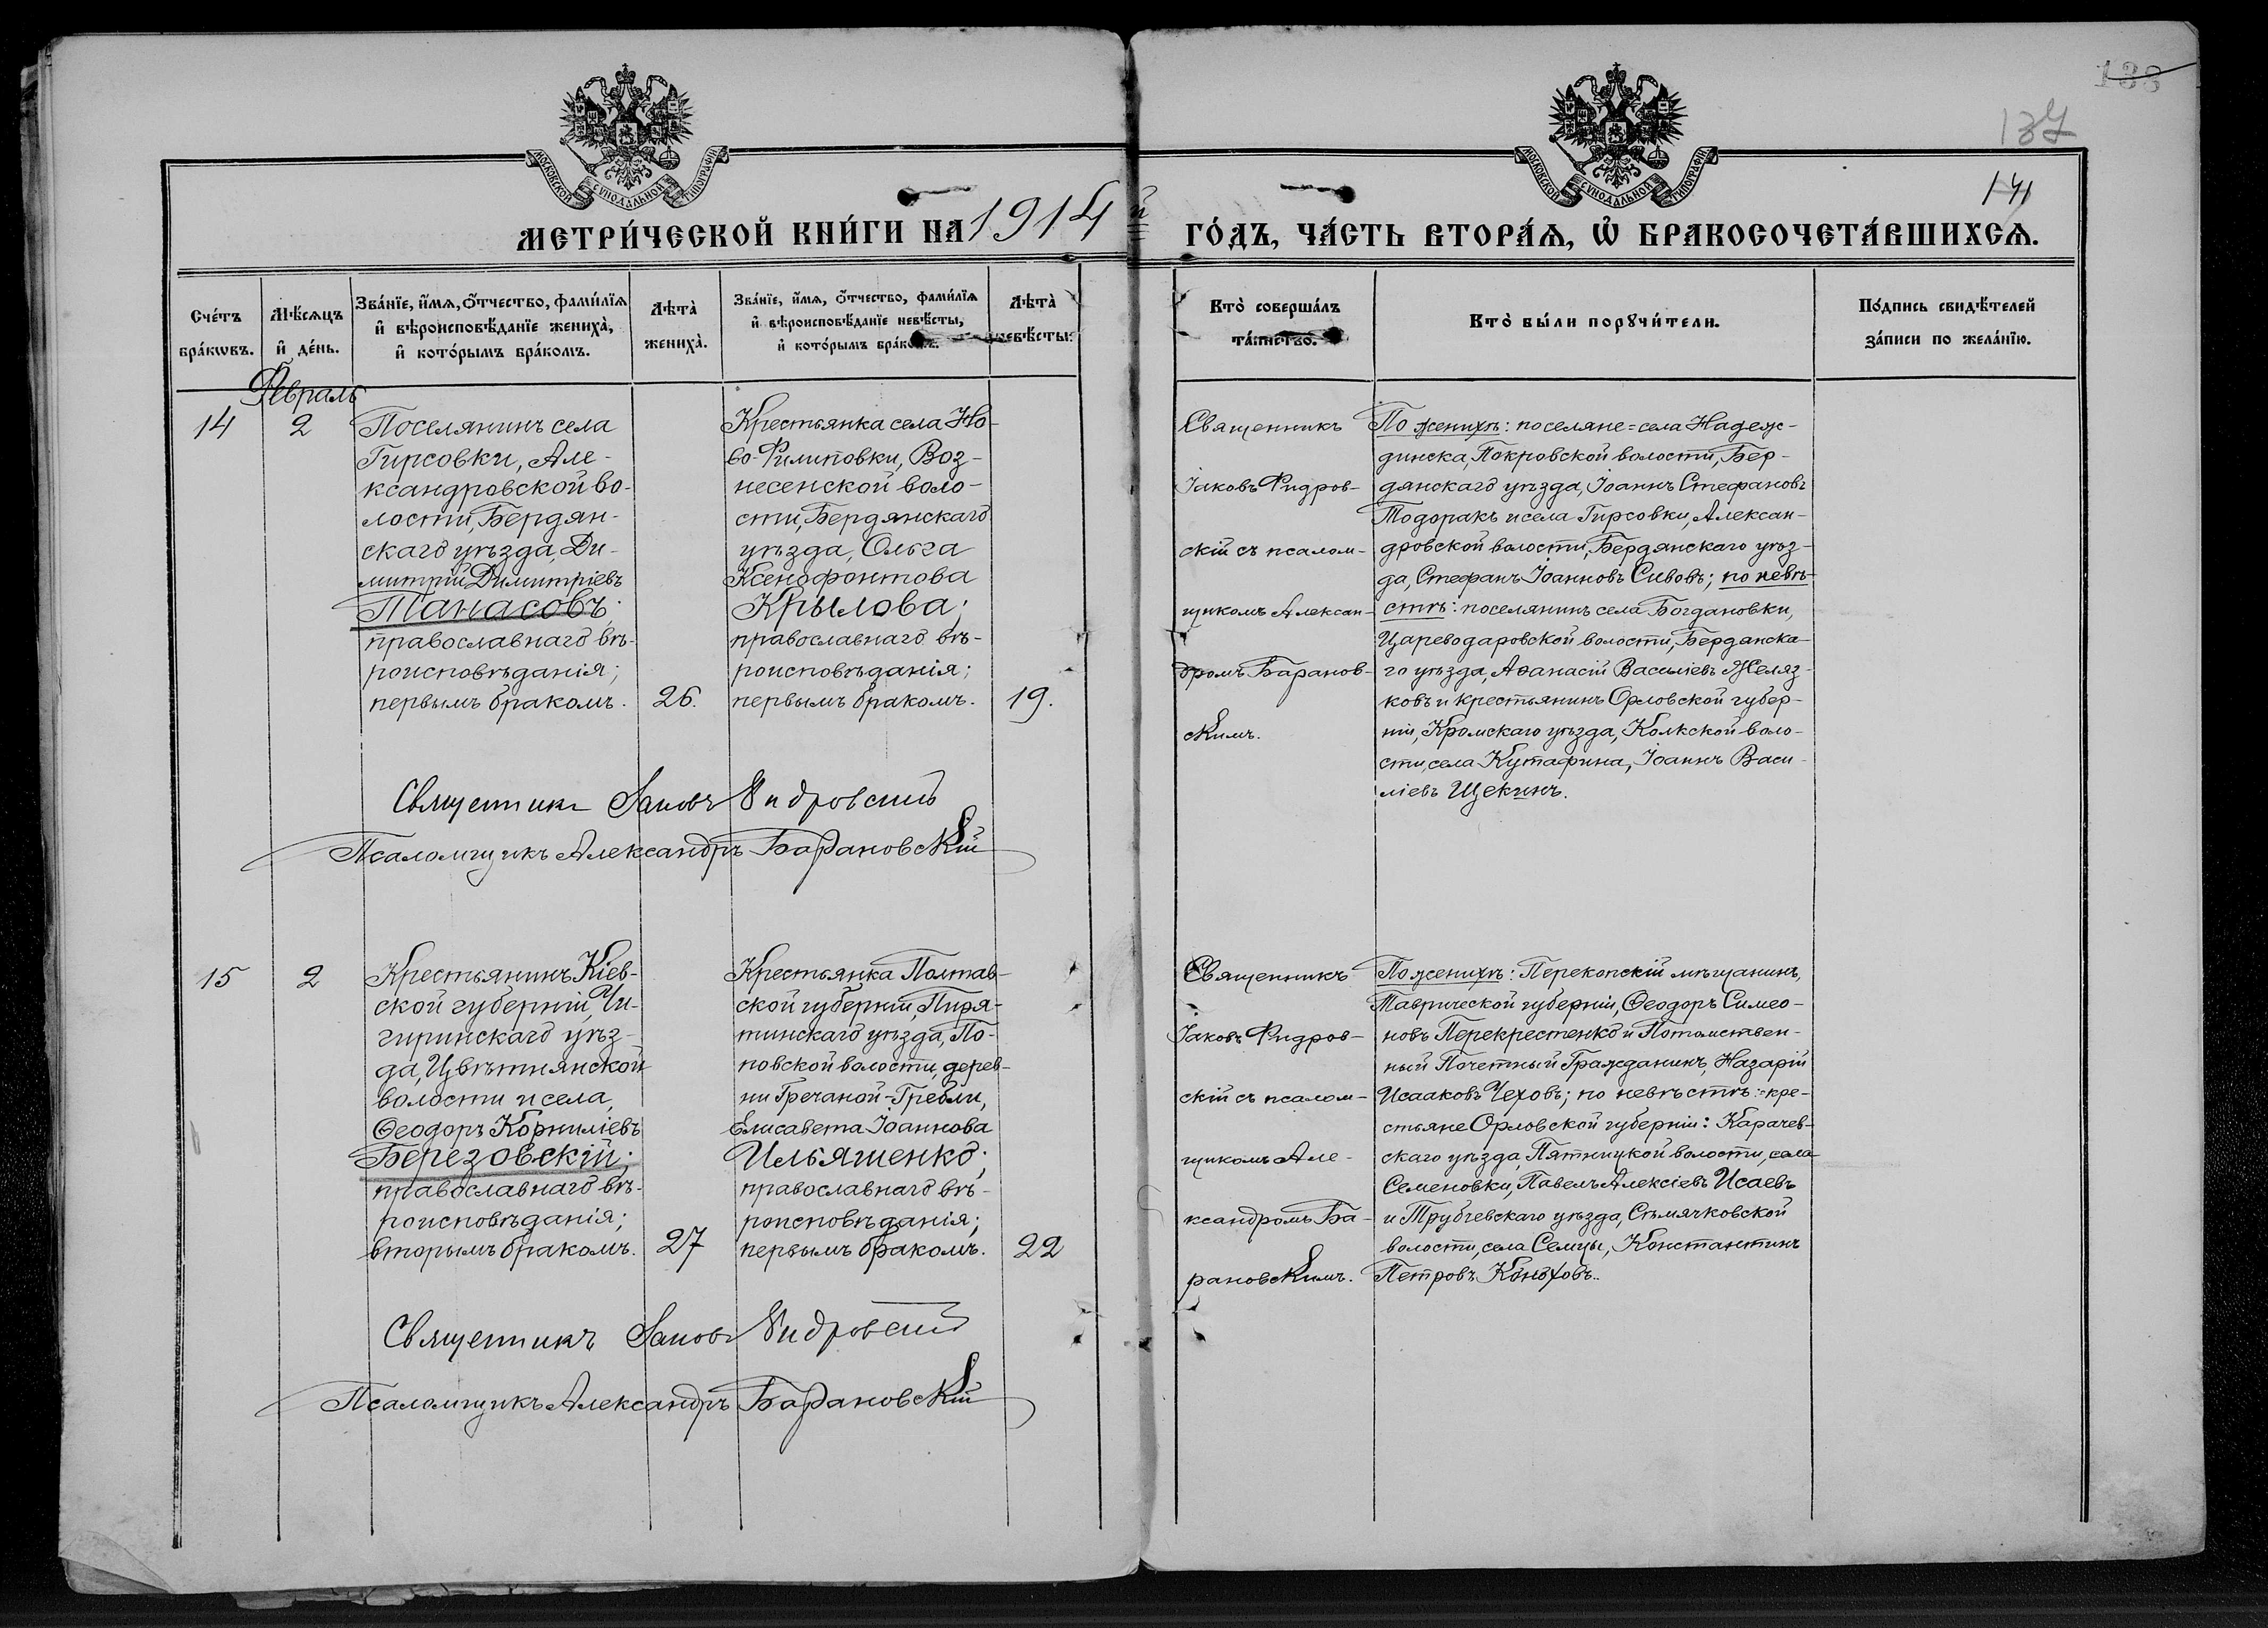 138
137
141
МОСКОВСКОЙ СѴНОДАЛЬНОЙ ТИПОГРАФІИ
МОСКОВСКОЙ СѴНОДАЛЬНОЙ ТИПОГРАФІИ
МЕТРИ́ЧЕСКОЙ КНИ́ГИ НА 1914 й ГО́ДЪ, ЧА́СТЬ ВТОРА́Ѧ, Ѡ҆ БРАКОСОЧЕТА́ВШИХСѦ.
Сче́тъ
бра́кѡвъ.
Мѣ́сѧцъ
и҆ де́нь.
Зва́нїе, и҆́мѧ, ѻ҆́тчество, фами́лїѧ
и҆ вѣроисповѣ́данїе жениха̀,
и҆ кото́рымъ бра́комъ.
Лѣта̀
жениха̀.
Зва́нїе, и҆́мѧ, ѻ҆́тчество, фами́лїѧ
и҆ вѣроисповѣ́данїе невѣ́сты,
и҆ кото́рымъ бра́комъ.
Лѣта̀
невѣ́сты.
Кто̀ соверша́лъ
та́инство.
Кто̀ бы́ли порꙋчи́тели.
По́дпись свидѣ́телей
за́писи по жела́нїю.
Февраль
14
2
Поселянинъ села
Гирсовки, Але-
ксандровской во-
лости, Бердян-
скаго уѣзда, Ди-
митрій Димитріевъ
Танасовъ;
православнаго вѣ-
роисповѣданія;
первымъ бракомъ.
26.
Крестьянка села Но-
во-Филиповки, Воз-
несенской воло-
сти, Бердянскаго
уѣзда, Ольга
Ксенофонтова
Крылова;
православнаго вѣ-
роисповѣданія;
первымъ бракомъ.
19.
Священникъ
Іаковъ Фидров-
скій съ псалом-
щикомъ Алексан-
дромъ Баранов-
скимъ.
По женихѣ: поселяне=села Надеж-
динска, Покровской волости, Бер-
дянскаго уѣзда, Іоаннъ Стефановъ
Тодоракъ и села Гирсовки, Алексан-
дровской волости, Бердянскаго уѣз-
да, Стефанъ Іоанновъ Сивовъ; по невѣ-
стѣ: поселянинъ села Богдановки,
Цареводаровской волости, Бердянска-
го уѣзда, Аѳанасій Василіевъ Желяз-
ковъ и крестьянинъ Орловской губер-
ніи, Кромскаго уѣзда, Колкской воло-
сти, села Кутафина, Іоаннъ Васи-
ліевъ Щекинъ.
Священникъ Іаковъ Фидровскій
Псаломщикъ Александръ Барановскій
15
2
Крестьянинъ Кіев-
ской губерніи, Чи-
гиринскаго уѣз-
да, Цвѣтнянской
волости и села,
Ѳеодоръ Корниліевъ
Березовскій;
православнаго вѣ-
роисповѣданія;
вторымъ бракомъ.
27
Крестьянка Полтав-
ской губерніи, Пиря-
тинскаго уѣзда, По-
повской волости, дерев-
ни Гречаной-Гребли,
Елисавета Іоаннова
Ильяшенко;
православнаго вѣ-
роисповѣданія;
первымъ бракомъ.
22
Священникъ
Іаковъ Фидров-
скій съ псалом-
щикомъ Але-
ксандромъ Ба-
рановскимъ.
По женихѣ: Перекопскій мѣщанинъ,
Таврической губерніи, Ѳеодоръ Симео-
новъ Перекрестенко и Потомствен-
ный Почетный Гражданинъ, Назарій
Исааковъ Чеховъ; по невѣстѣ: кре-
стьяне Орловской губерніи: Карачев-
скаго уѣзда, Пятницкой волости, села
Семеновки, Павелъ Алексіевъ Исаевъ
и Трубчевскаго уѣзда, Сѣмячковской
волости, села Семцы, Константинъ
Петровъ Конюховъ.
Священникъ Іаковъ Фидровскій
Псаломщикъ Александръ Барановскій